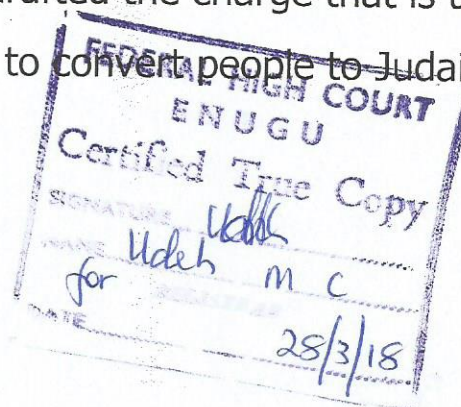 drafted the charge that is t
to convert people to Judai
FEDERAL HIGH COURT
ENUGU
Certified True Copy
SIGNATURE
NAME Udeh M C
for REGISTRAR
DATE 28/3/18